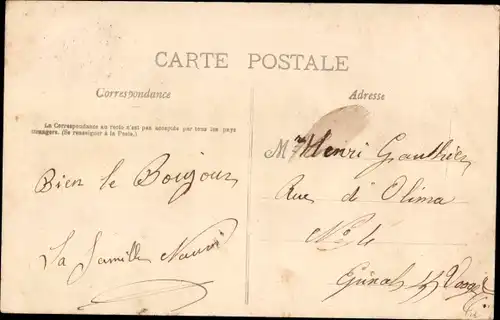 CARTE POSTALE
Correspondance
Adresse
La Correspondance au recto n'est pas acceptée par tous les pays
étrangers. (Se renseigner à la Poste.)
Bien le Boujour
La famille
M Henri Gauthier
Rue d'Olima
No 4
Vosges